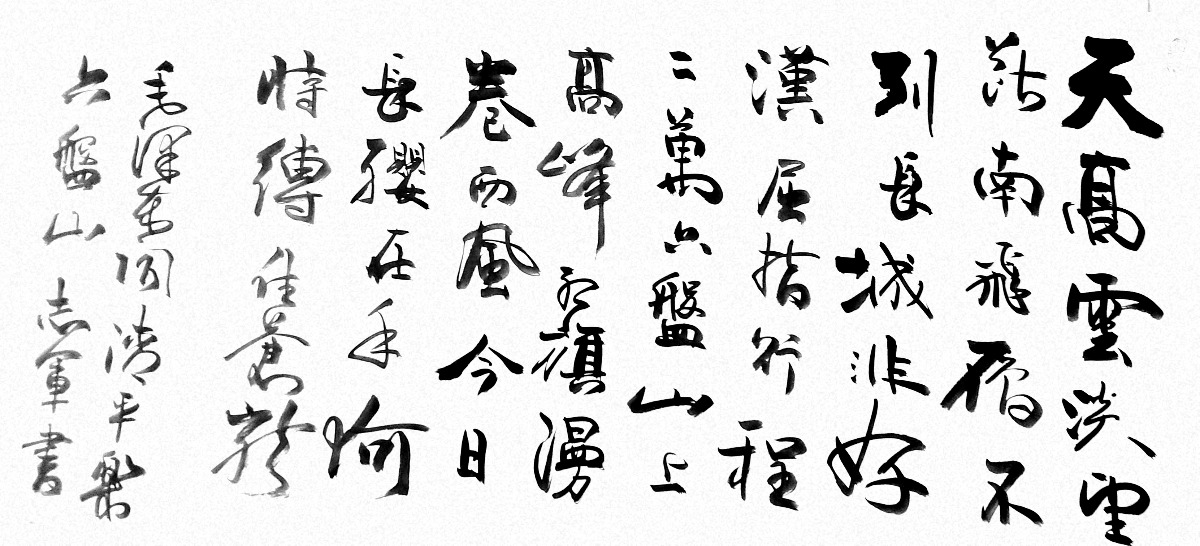 天高雲淡望
断南飛雁不
到長城非好
漢屈指行程
二萬六盤山上
高峰紅旗漫
卷西風今日
長纓在手何
時縛住蒼龍
毛澤東詞清平樂
六盤山志軍書